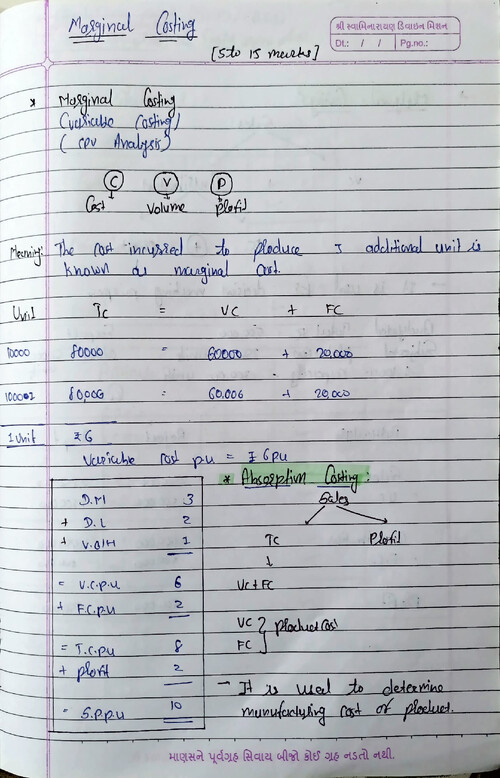 શ્રી સ્વામિનારાયણ ડિવાઇન મિશન
Dt.: / / Pg.no.:
Marginal Costing
[5 to 15 marks]
* Marginal Costing
(Variable Costing)
(CPV Analysis)
C V P
Cost Volume Profit
Meaning: The cost incurred to produce 1 additional unit is
known as marginal cost.
Unit TC = VC + FC
10000 80000 = 60000 + 20,000
10001 80,006 = 60,006 + 20,000
1 Unit ₹6
Variable cost pu = ₹ 6 pu
* Absorption Costing:
Sales
TC Profit
VC + FC
VC
FC } Product cost
- It is used to determine
manufacturing cost of product.
D.M 3
+ D.L 2
+ V.O/H 1
= V.C.p.u 6
+ F.C.p.u 2
= T.C.p.u 8
+ profit 2
= S.P.p.u 10
માણસને પૂર્વગ્રહ સિવાય બીજો કોઈ ગ્રહ નડતો નથી.